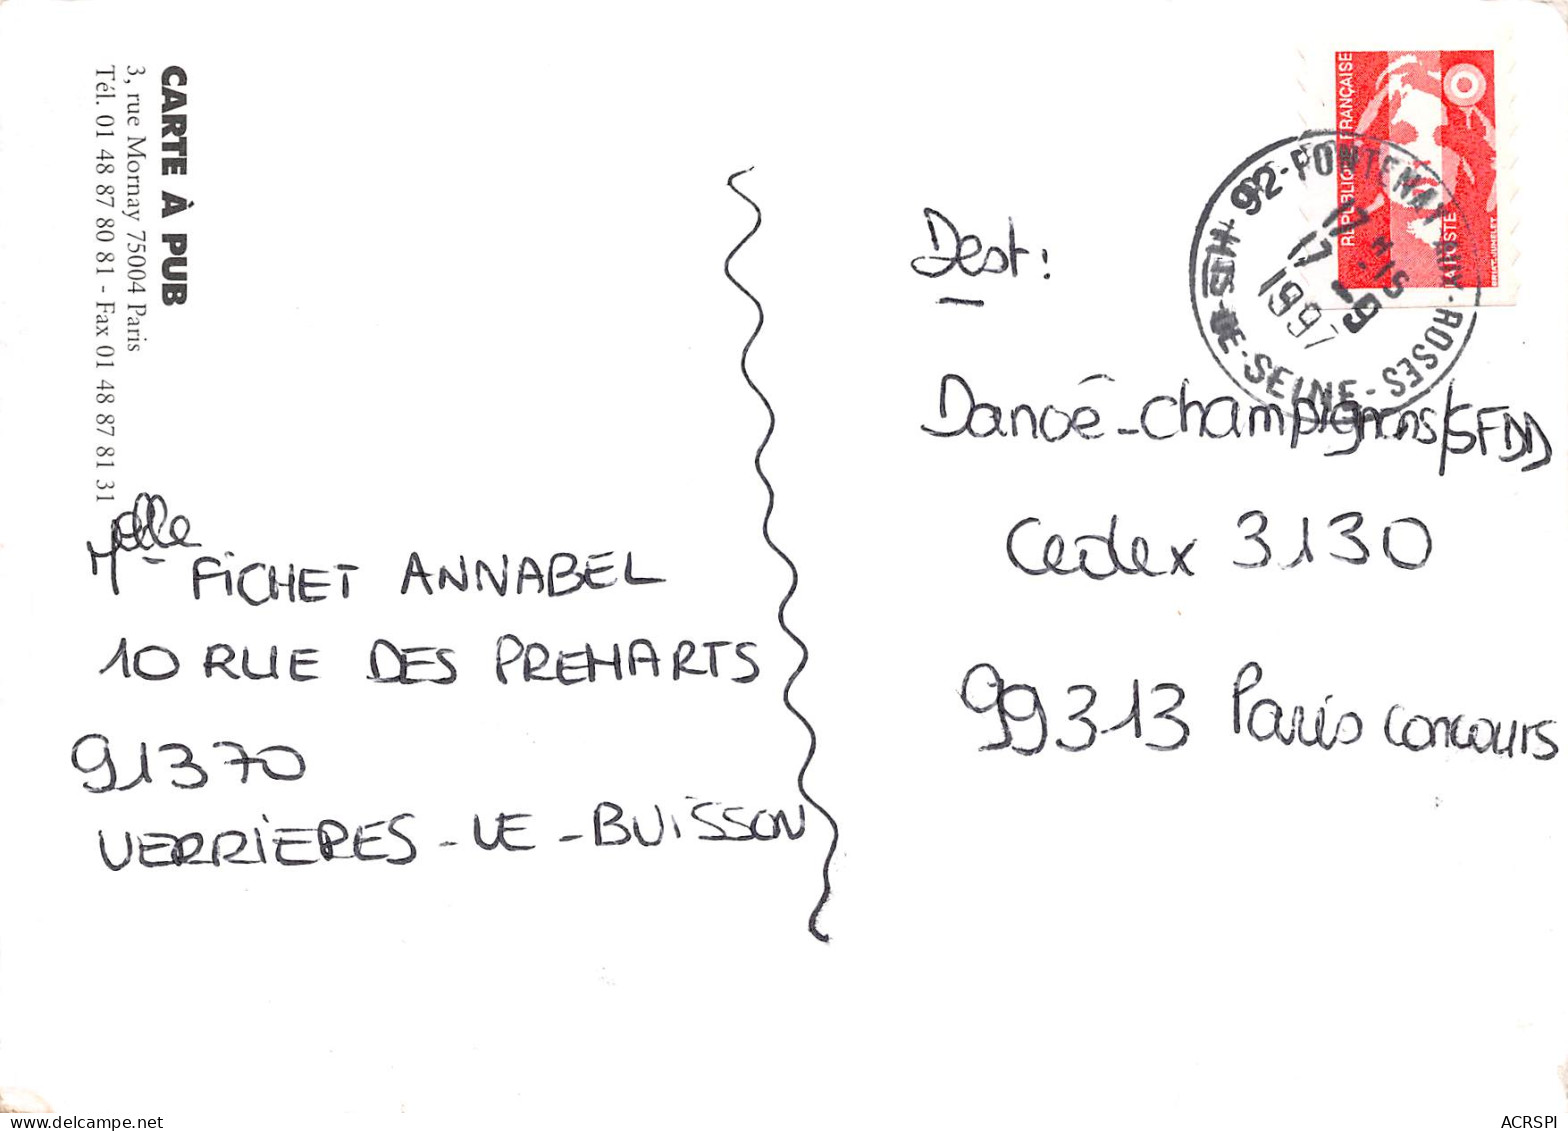 CARTE À PUB
3, rue Mornay 75004 Paris
Tél. 01 48 87 80 81 - Fax 01 48 87 81 31
RÉPUBLIQUE FRANÇAISE
LA POSTE
92-FONTENAY AUX-ROSES
HTS-DE-SEINE
17 H15
17 -9
1997
Dest:
Danoé-champignons/SFDD
Cedex 3130
99313 Paris concours
Melle FICHET ANNABEL
10 RUE DES PREHARTS
91370
VERRIERES-LE-BUISSON
ACRSPI